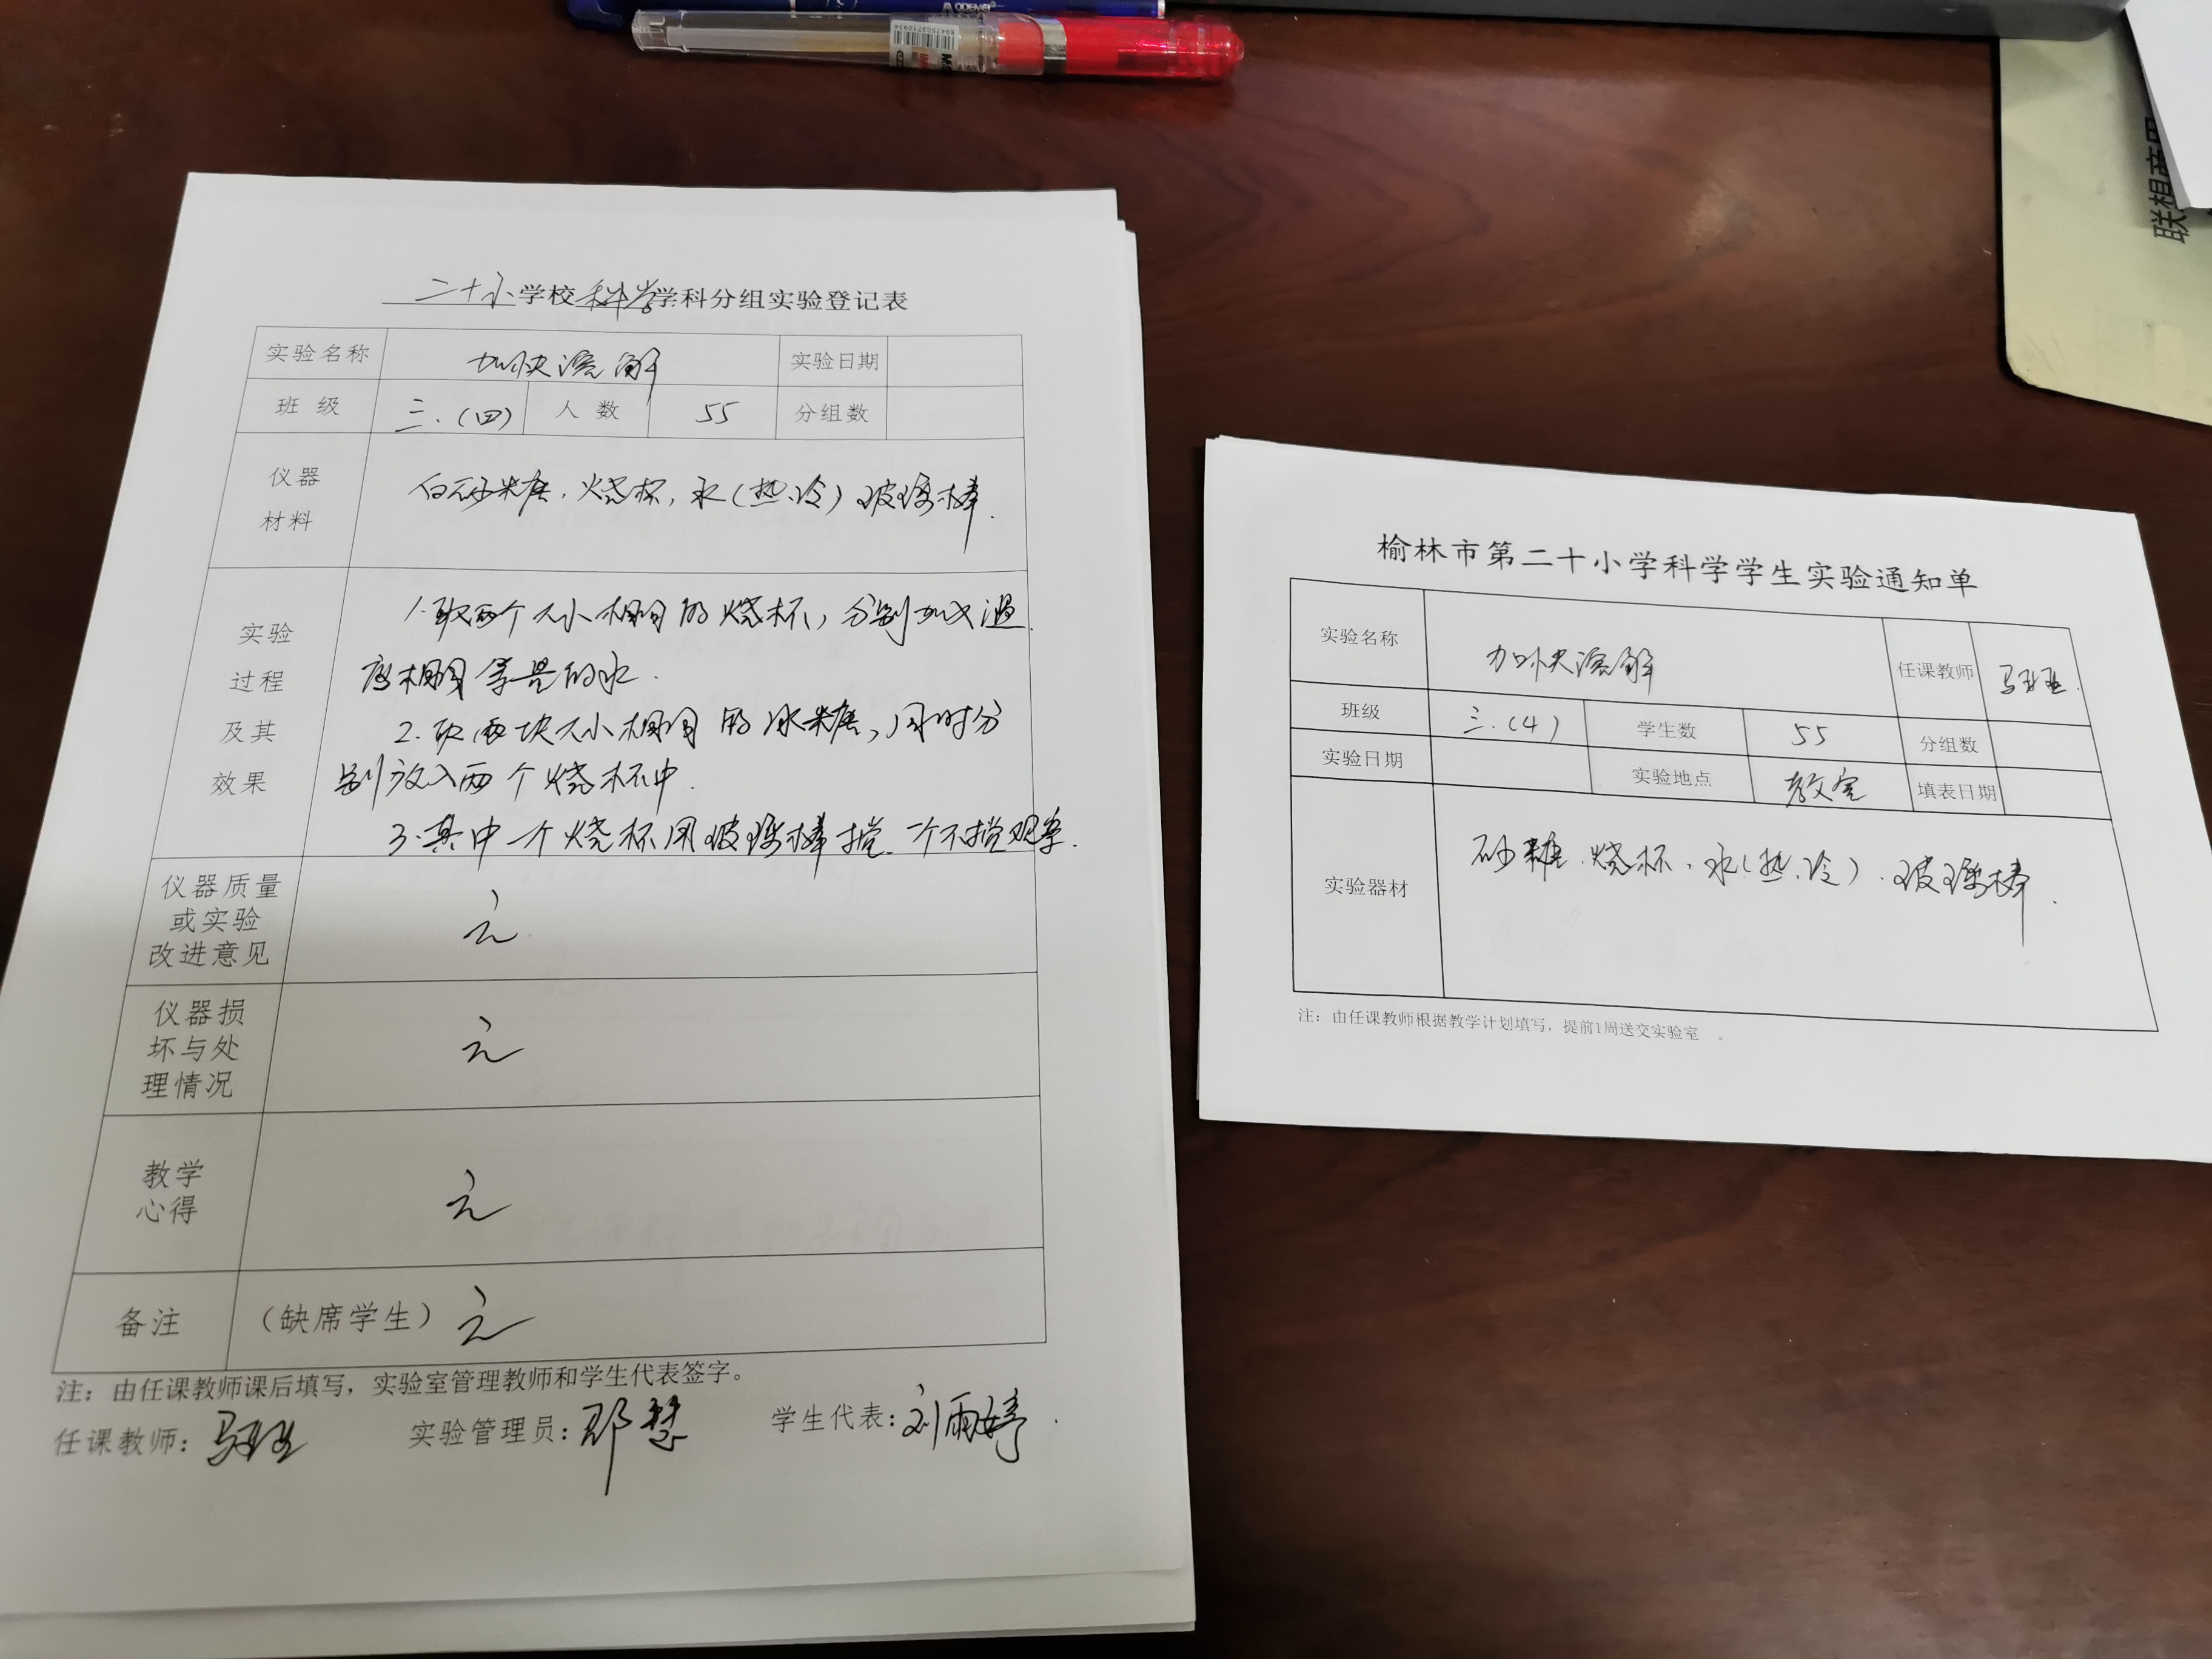 ODEMEI
6947503710934
二十小学校科学学科分组实验登记表
实验名称 加快溶解 实验日期
班级 三.(四) 人数 55 分组数
仪器材料 白砂糖.烧杯,水(热、冷)玻璃棒.
实验过程及其效果
1.取两个大小相同的烧杯,分别加入温
度相同等量的水.
2.取两块大小相同的冰糖,同时分
别放入两个烧杯中.
3.其中一个烧杯用玻璃棒搅.一个不搅观察.
仪器质量或实验改进意见 无
仪器损坏与处理情况 无
教学心得 无
备注 (缺席学生) 无
注:由任课教师课后填写,实验室管理教师和学生代表签字。
任课教师: 实验管理员:邓慧 学生代表:刘雨婷.
榆林市第二十小学科学学生实验通知单
实验名称 加快溶解 任课教师
班级 三.(4) 学生数 55 分组数
实验日期 实验地点 教室 填表日期
实验器材 砂糖.烧杯、水(热、冷).玻璃棒.
注:由任课教师根据教学计划填写,提前1周送交实验室 。
联想商用